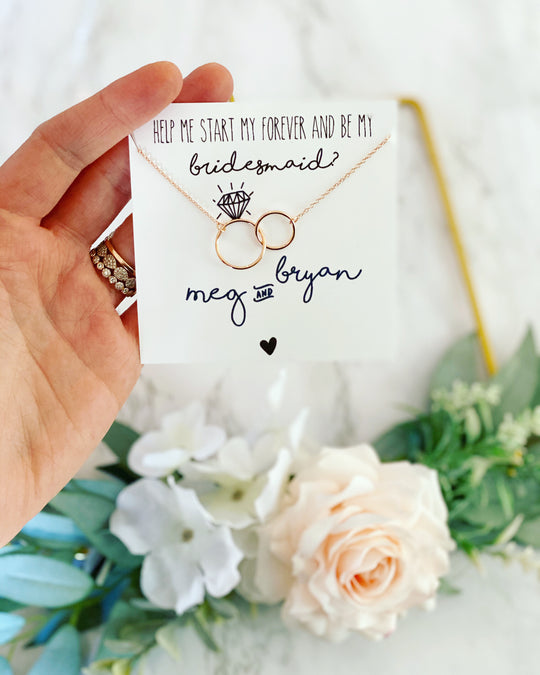 HELP ME START MY FOREVER AND BE MY
bridesmaid?
meg AND bryan